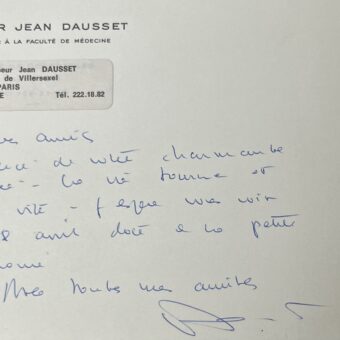 R JEAN DAUSSET
À LA FACULTÉ DE MÉDECINE
eur Jean DAUSSET
de Villersexel
PARIS
E Tél. 222.18.82
amis
de votre charmante
La vie tourne et
vite - J'espère vous voir
avril à la petite
Avec toutes mes amitiés